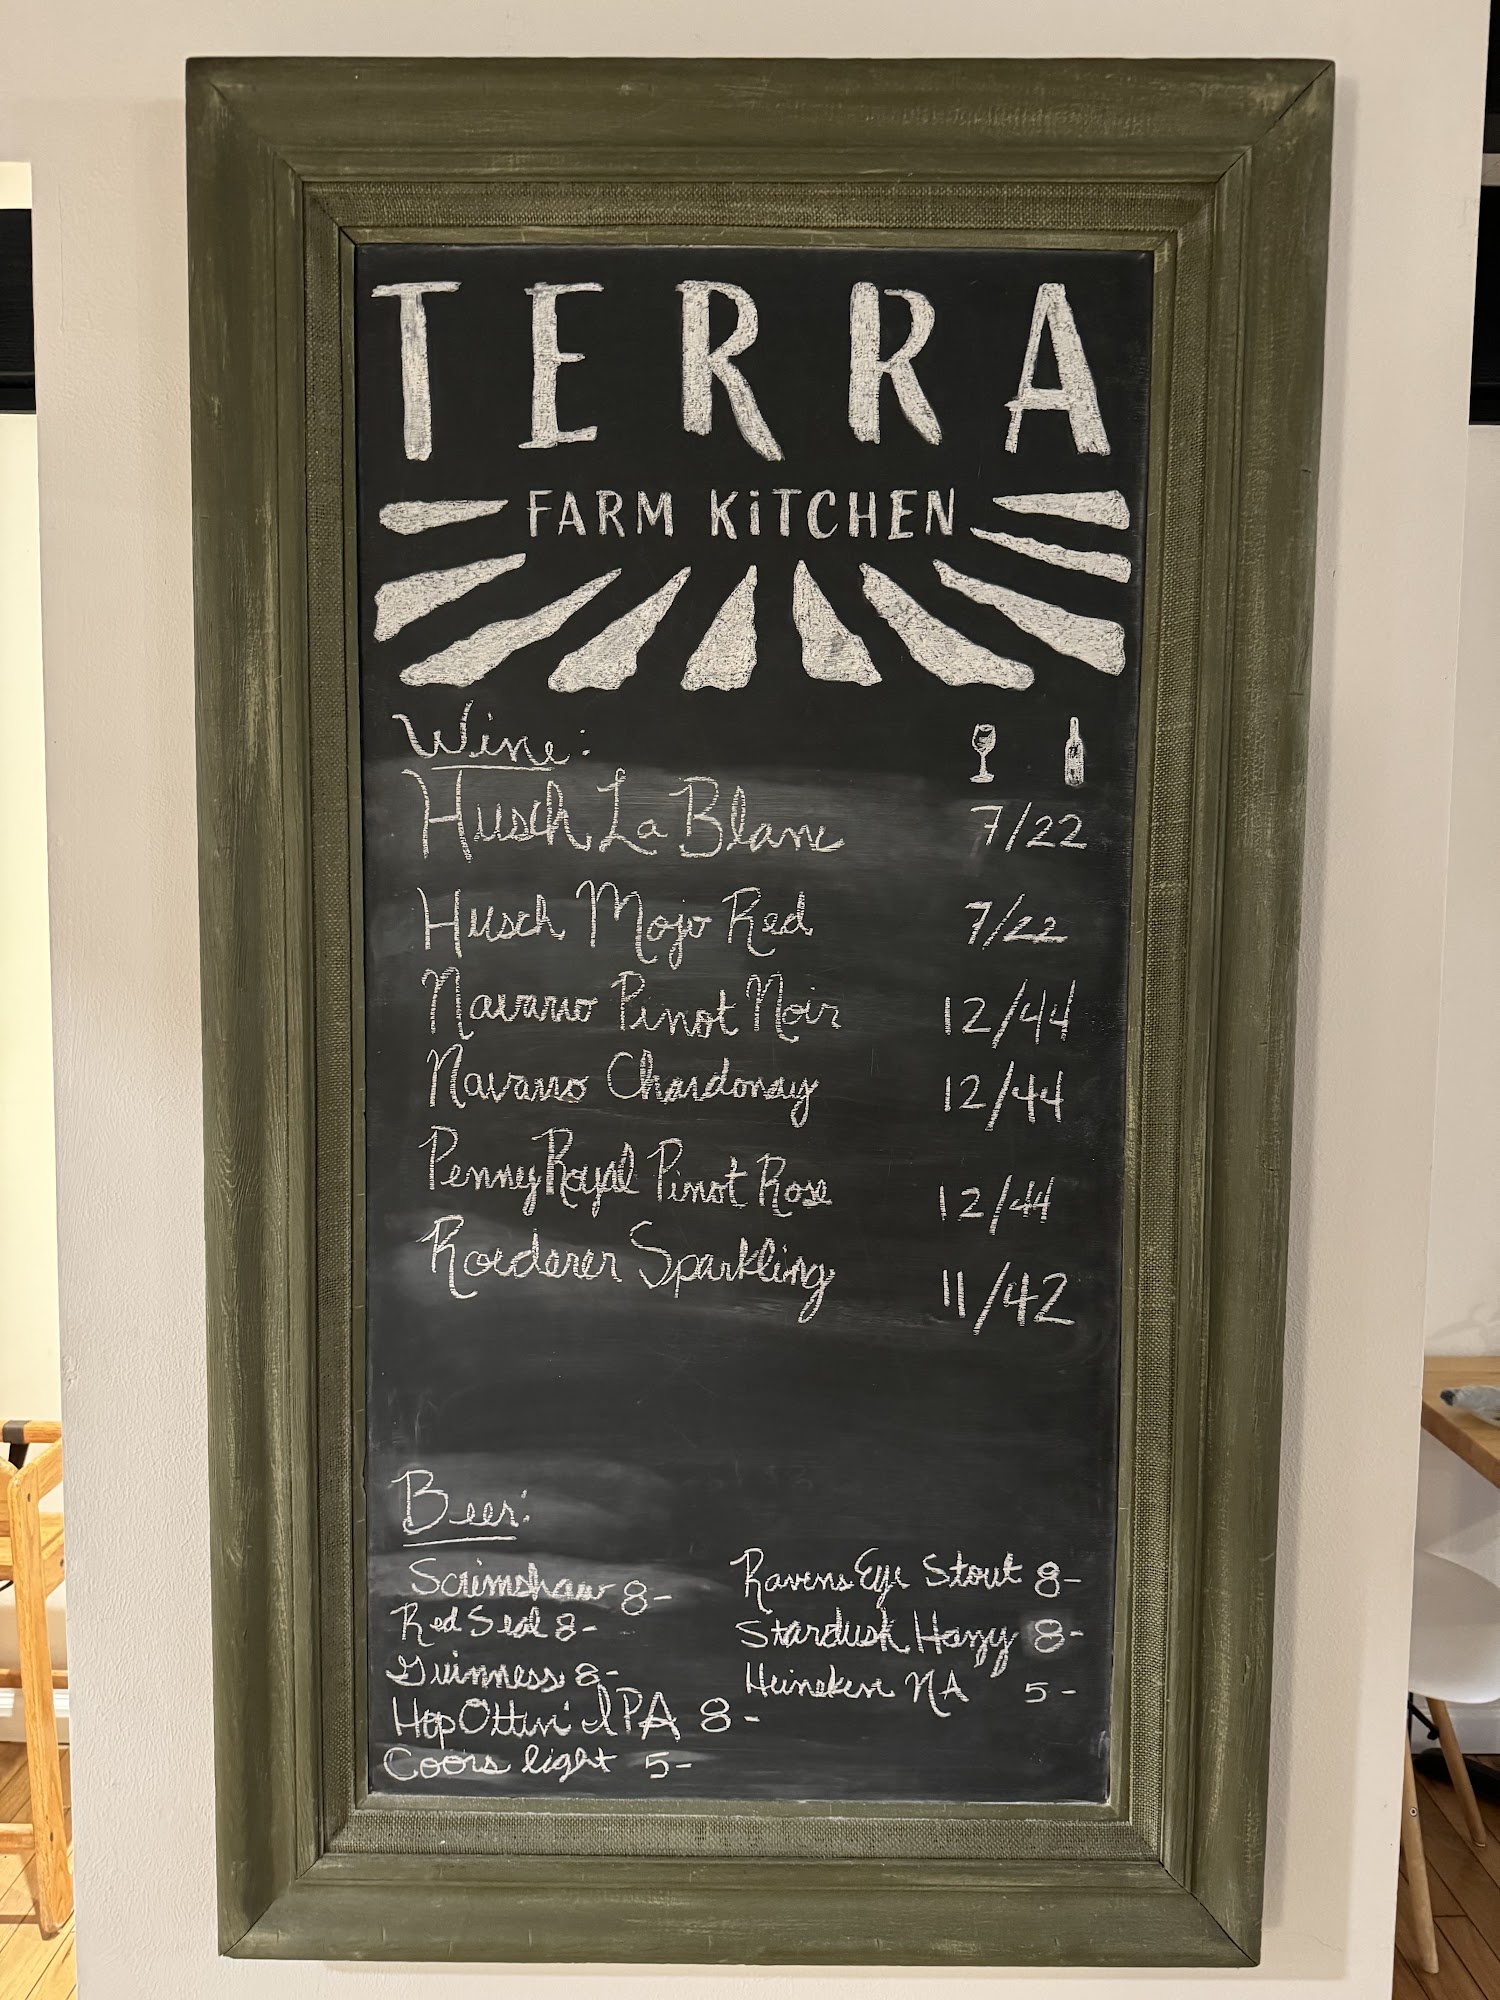 TERRA
FARM KiTCHEN
Wine:
Husch La Blanc 7/22
Husch Mojo Red 7/22
Navarro Pinot Noir 12/44
Navarro Chardonay 12/44
PennyRoyal Pinot Rose 12/44
Roederer Sparkling 11/42
Beer:
Scrimshaw 8-
Red Seal 8-
Guinness 8-
Hop Ottin' IPA 8-
Coors light 5-
Ravens Eye Stout 8-
Stardust Hazy 8-
Heineken NA 5-